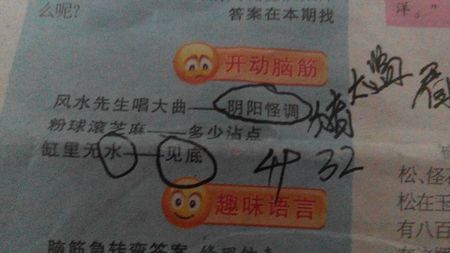 么呢?
答案在本期找
洋。"
开动脑筋
风水先生唱大曲——阴阳怪调
粉球滚芝麻——多少沾点
缸里无水——见底
大学
32
趣味语言
松、怪石
松在玉
有八百
脑筋急转弯答案